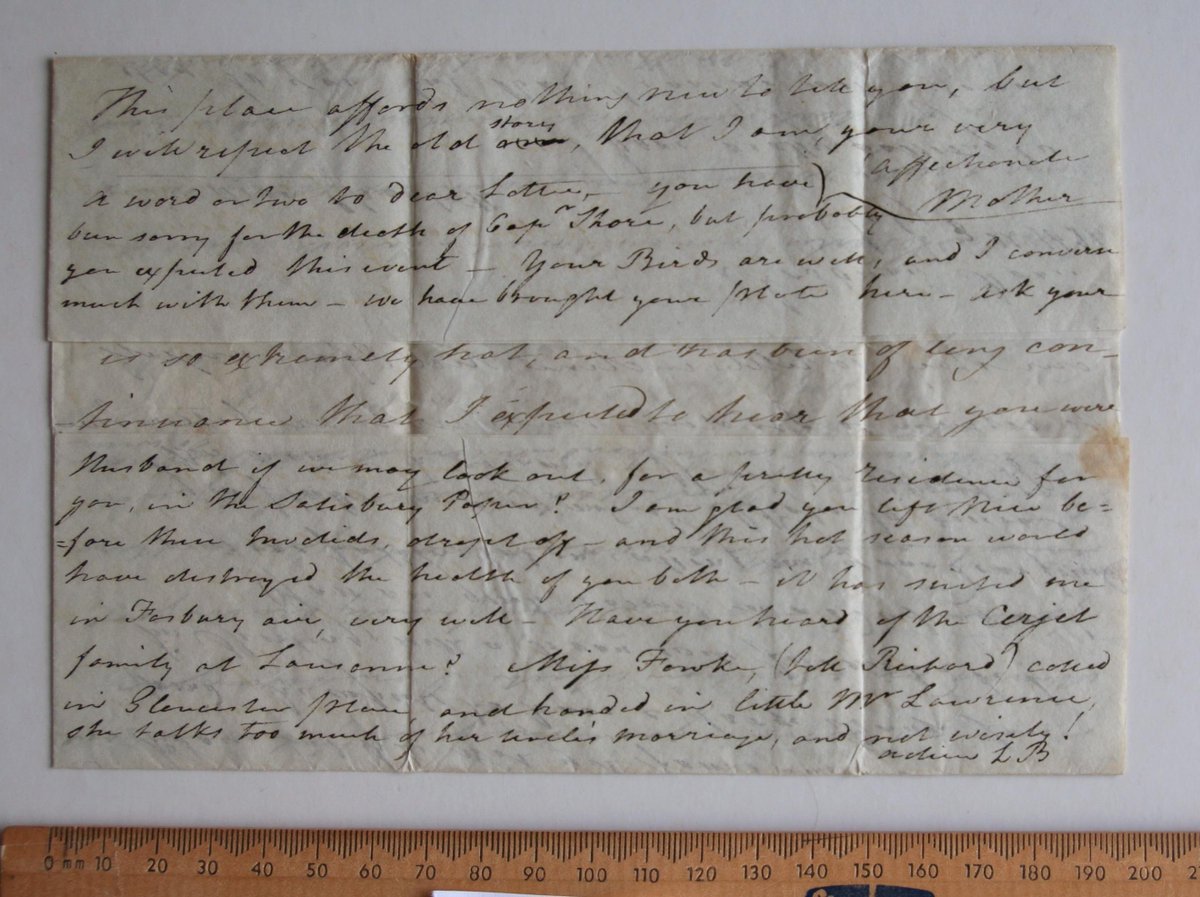 This place affords nothing new to tell you, but
I will repeat the old one story, that I am, your very
affectionate
Mother
a word or two to dear Lottie, – you have
been sorry for the death of Capn Thore, but probably
you expected this event – Your Birds are well, and I converse
much with them – we have brought your plate here – ask your
is so extremely hot, and has been of long con-
tinuance that I expected to hear that you were
Husband if we may look out, for a pretty residence for
you, in the Salisbury Paper? I am glad you left Nice be=
=fore these Invalids dropt off – and this hot season would
have destroyed the health of you both – it has suited me
in Fosbury air, very well – Have you heard of the Cerjet
family at Lausanne? Miss Fowke, (tell Richard) called
in Glocester place, and handed in little Mr Lawrence,
she talks too much of her uncle's marriage, and not wisely!
adieu L B
0 mm 10 20 30 40 50 60 70 80 90 100 110 120 130 140 150 160 170 180 190 200